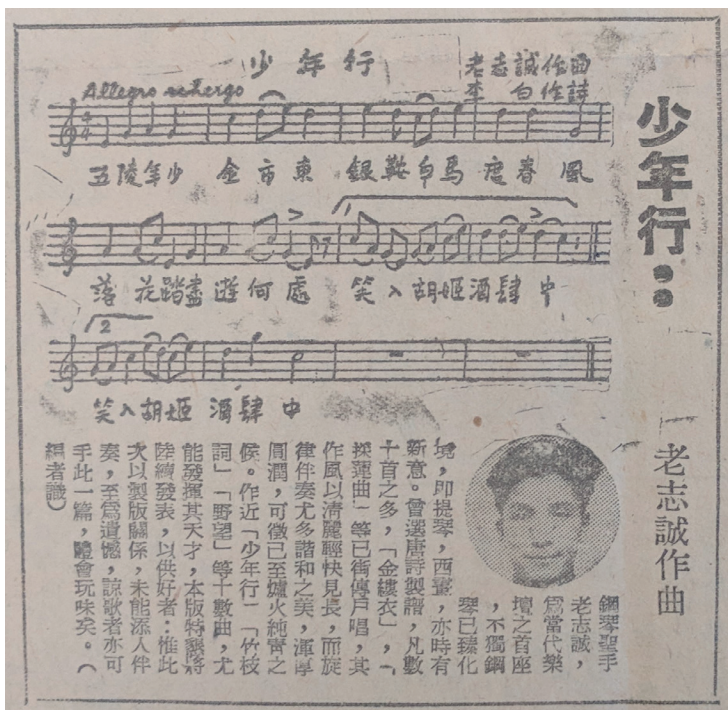 少年行：
老志誠作曲
少年行
老志誠作曲
李白作詩
Allegro scherzo
五陵年少 金市東 銀鞍白馬度春風
落花踏盡遊何處 笑入胡姬酒肆中
笑入胡姬酒肆中
鋼琴聖手
老志誠，
爲當代樂
壇之首座
，不獨鋼
琴已臻化
境，即提琴，西畫，亦時有
新意。曾選唐詩製譜，凡數
十首之多，「金縷衣」，「
採蓮曲」等已街傳戶唱，其
作風以清麗輕快見長，而旋
律伴奏尤多諧和之美，渾厚
圓潤，可徵已至爐火純靑之
候。作近「少年行」「竹枝
詞」「野望」等十數曲，尤
能發揮其天才，本版特懇將
陸續發表，以供好者：惟此
次以製版關係，未能添入伴
奏，至爲遺憾，諒歌者亦可
手此一篇，體會玩味矣。（
編者識）